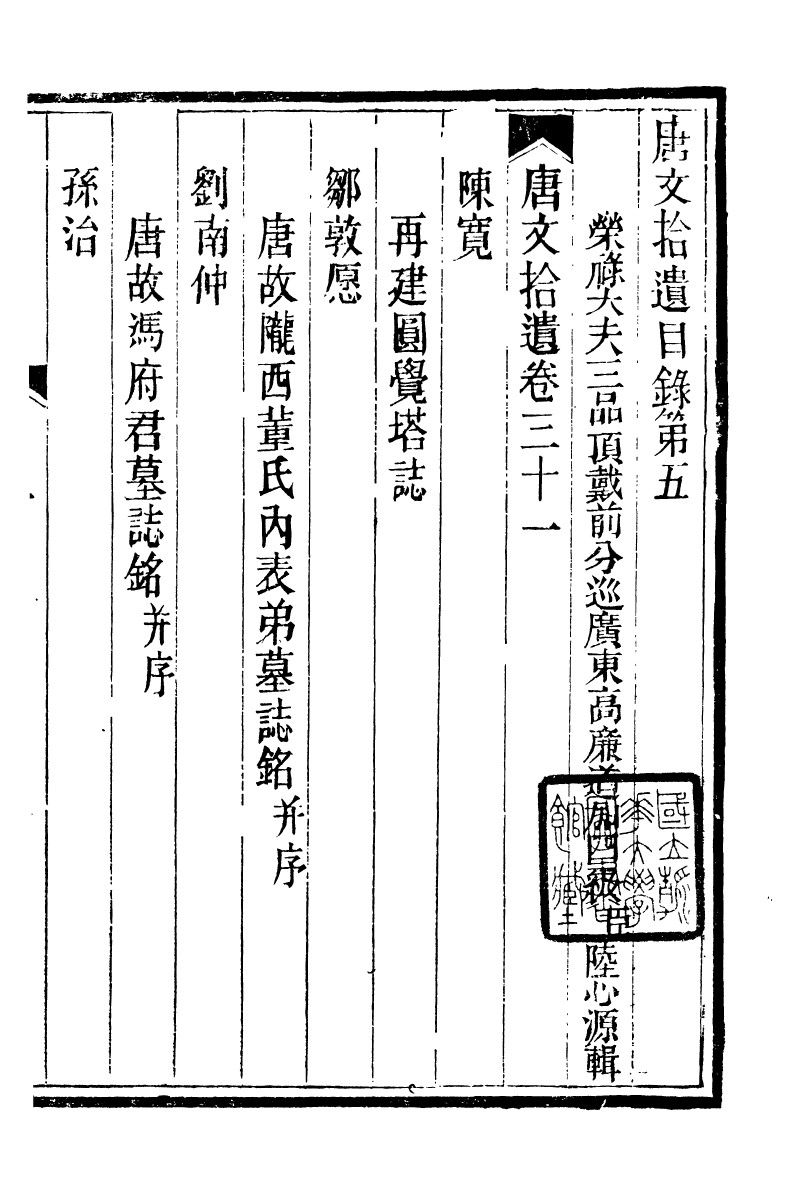 唐文拾遺目錄第五
榮祿大夫三品頂戴前分巡廣東高廉道加四級臣陸心源輯
唐文拾遺卷三十一
陳寬
再建圓覺塔誌
鄒敦愿
唐故隴西董氏內表弟墓誌銘并序
劉南仲
唐故馮府君墓誌銘并序
孫治
國立清華大學圖書館藏